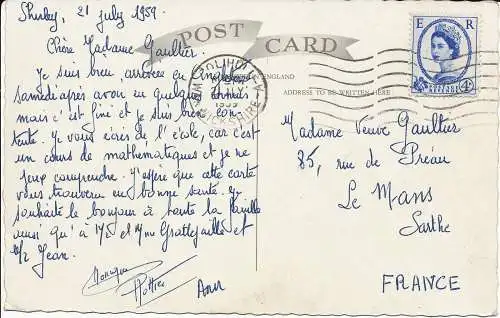 Shirley, 21 july 1959.
Chère Madame Gaultier.
Je suis bien arrivée en Angleterre
samedi après avoir eu quelques ennuis
mais c'est fini et je suis bien con-
tente. Je vous écris de l'école, car c'est
un cours de mathématiques et je ne
peux comprendre. J'espère que cette carte
vous trouvera en bonne santé. Je
souhaite le bonjour à toute la famille
ainsi qu'à Mr et Mme Grattefaille et
Mr Jean.
Monique
Pottier
Ann
POST CARD
ENGLAND
ADDRESS TO BE WRITTEN HERE
SOLIHULL
BIRMINGHAM
WARWICKSHIRE
1959
E R
4D
POSTAGE REVENUE
Madame Veuve Gaultier
85, rue de Préau
Le Mans
Sarthe
FRANCE